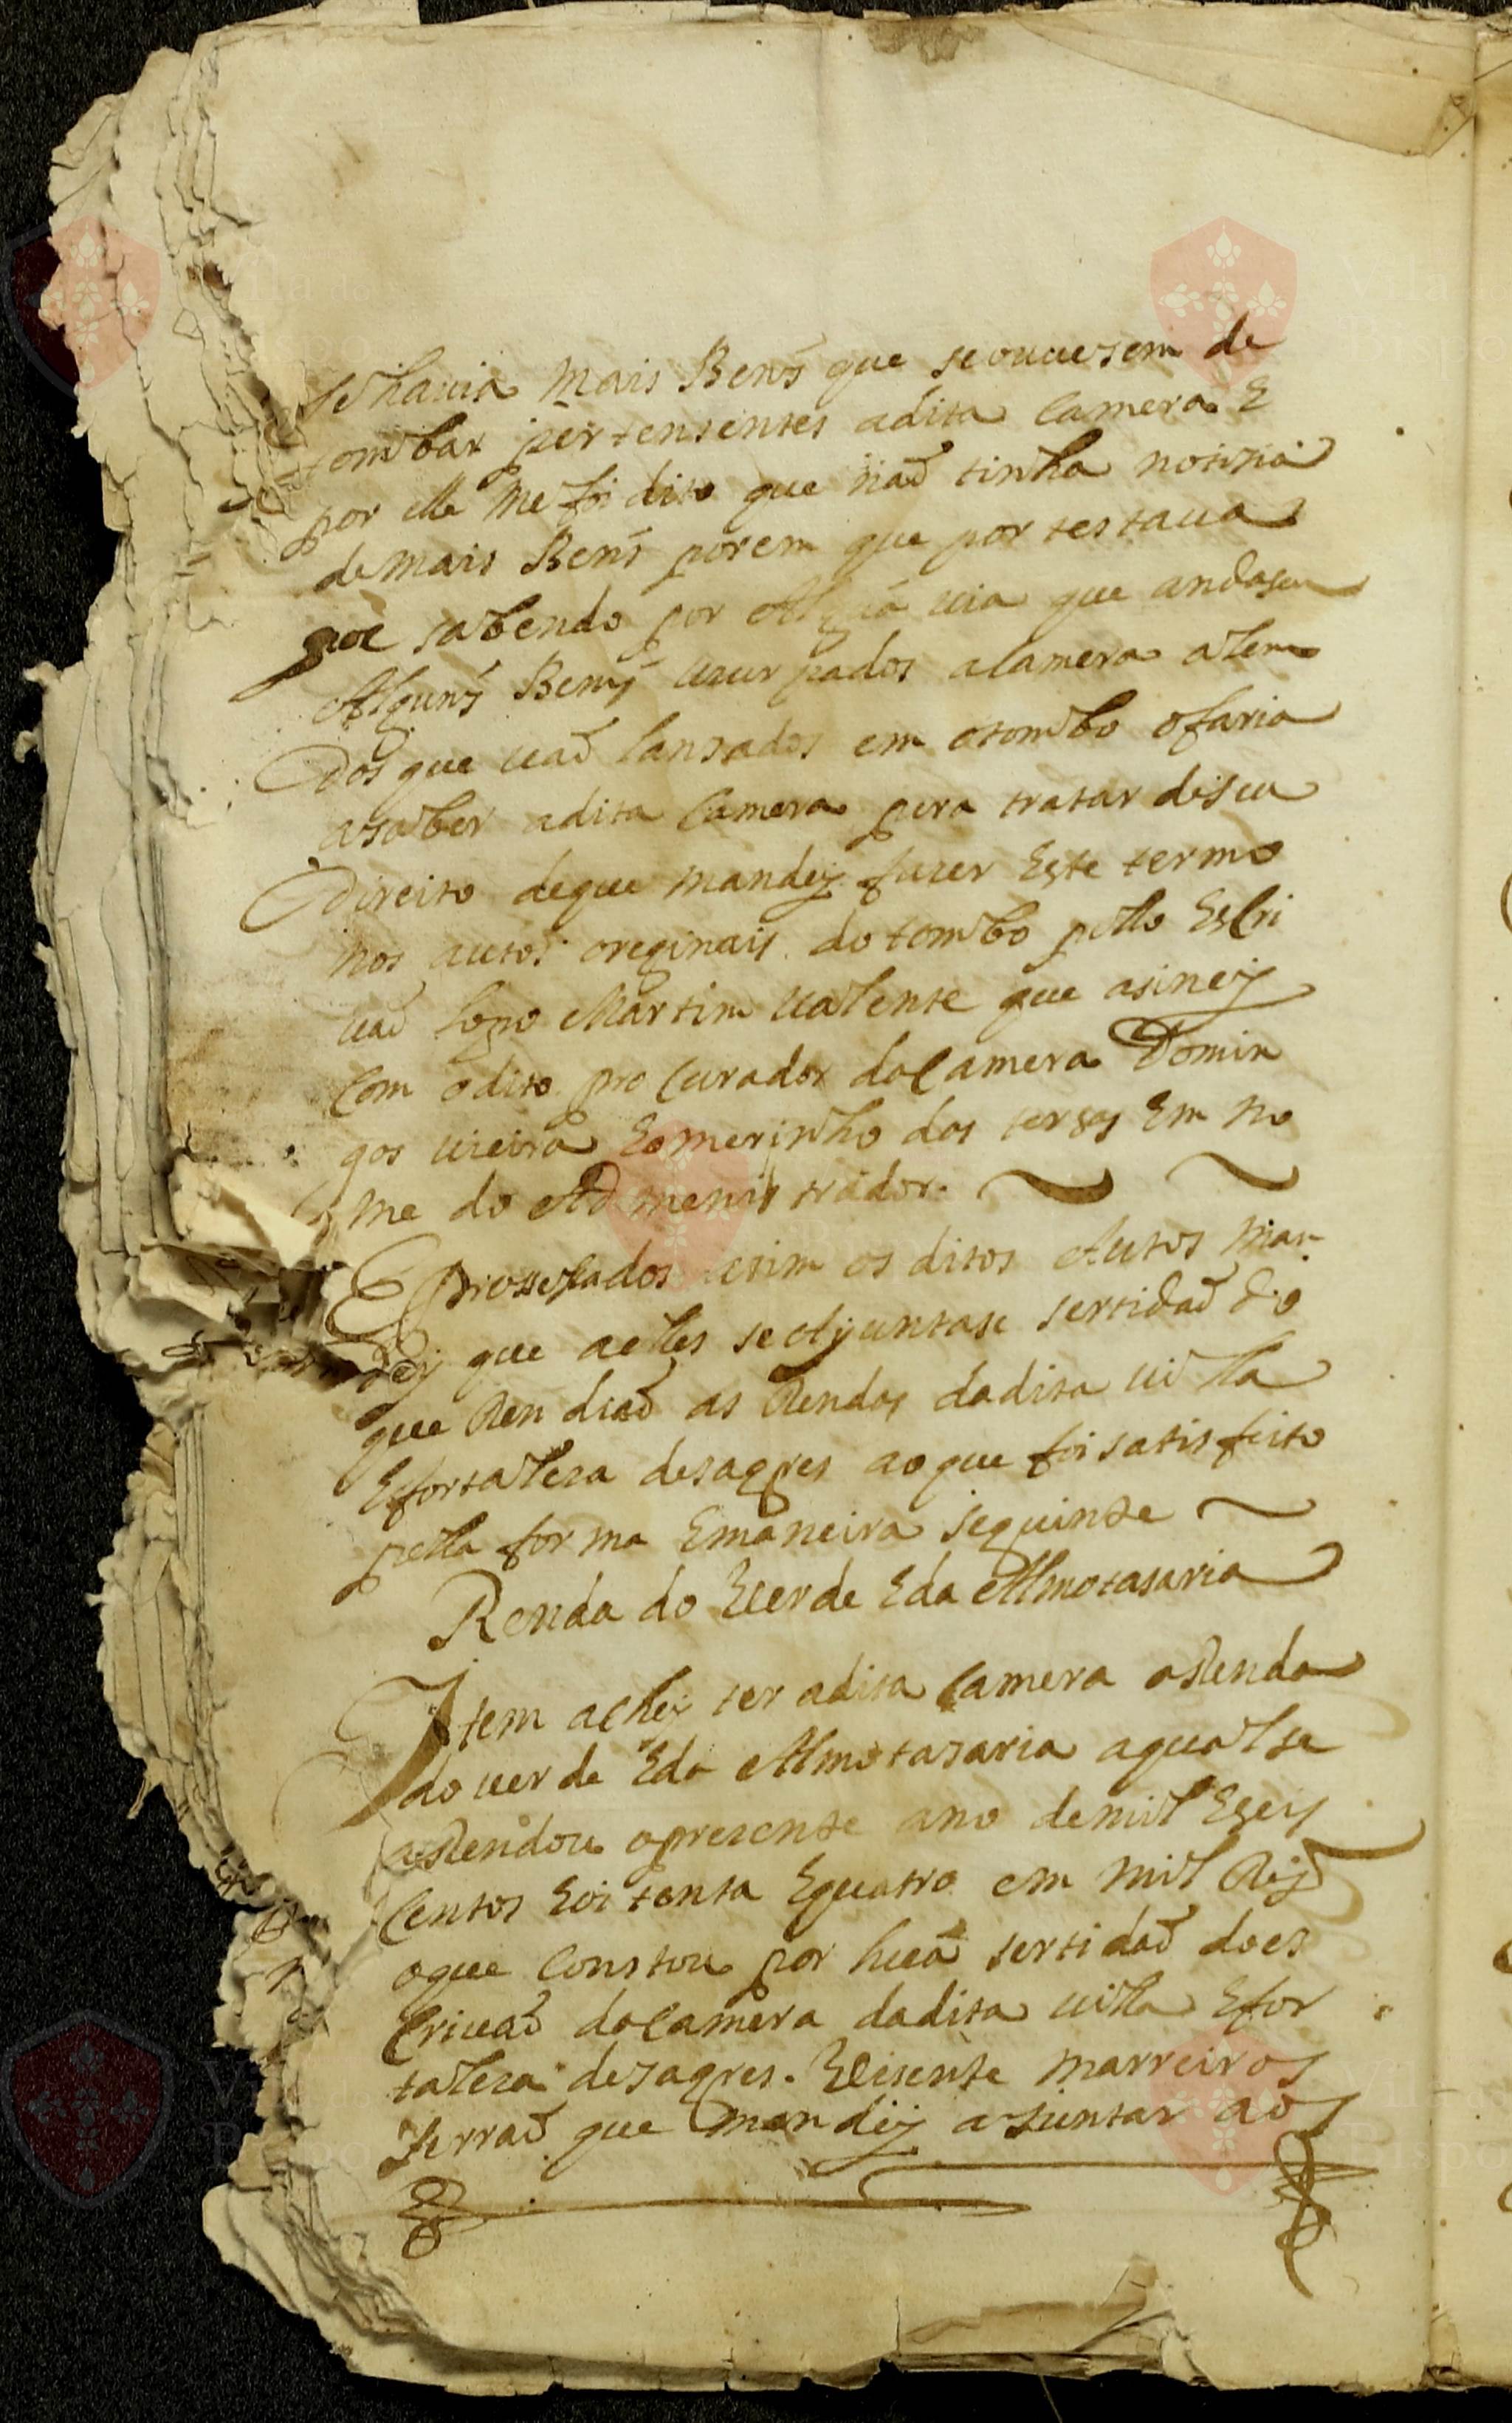 se hauia mais Bens que se ouuesem de
tombar pertensentes adita Camera E
por elle me foi dito que naõ tinha notisia
de mais Bens porem que portestaua
que sabendo por Alguã uia que andasem
Alguns Bens uzurpados a Camera alem
dos que uaõ lansados em otombo ofaria
asaber adita Camera pera tratar deseu
Direito deque mandej fazer Este termo
nos autos oreginais do tombo pello Escri
uaõ Lopo Martim ualente que asinej
Com odito procurador daCamera Domin
gos uieira Eomerinho das tersas Em no
me do Admenistrador
E prosesados asim os ditos Autos man
dej que aelles se Ajuntase sertidaõ do
que Rendiaõ as Rendas dadita uilla
Efortaleza desagres aoque foi satisfeito
pella forma Emaneira seguinte
Renda do Uerde Eda Almotasaria
Item achej ter adita Camera aRenda
do uerde Eda Almotasaria aqual se
aRendou oprezente ano demil Eseis
Centos Eoitenta Equatro em mil Rejs
oque Constou por huã sertidaõ does
Criuaõ daCamera dadita uilla Efor
taleza desagres. Uisente Marreiros
serraõ que mandej ajuntar aos